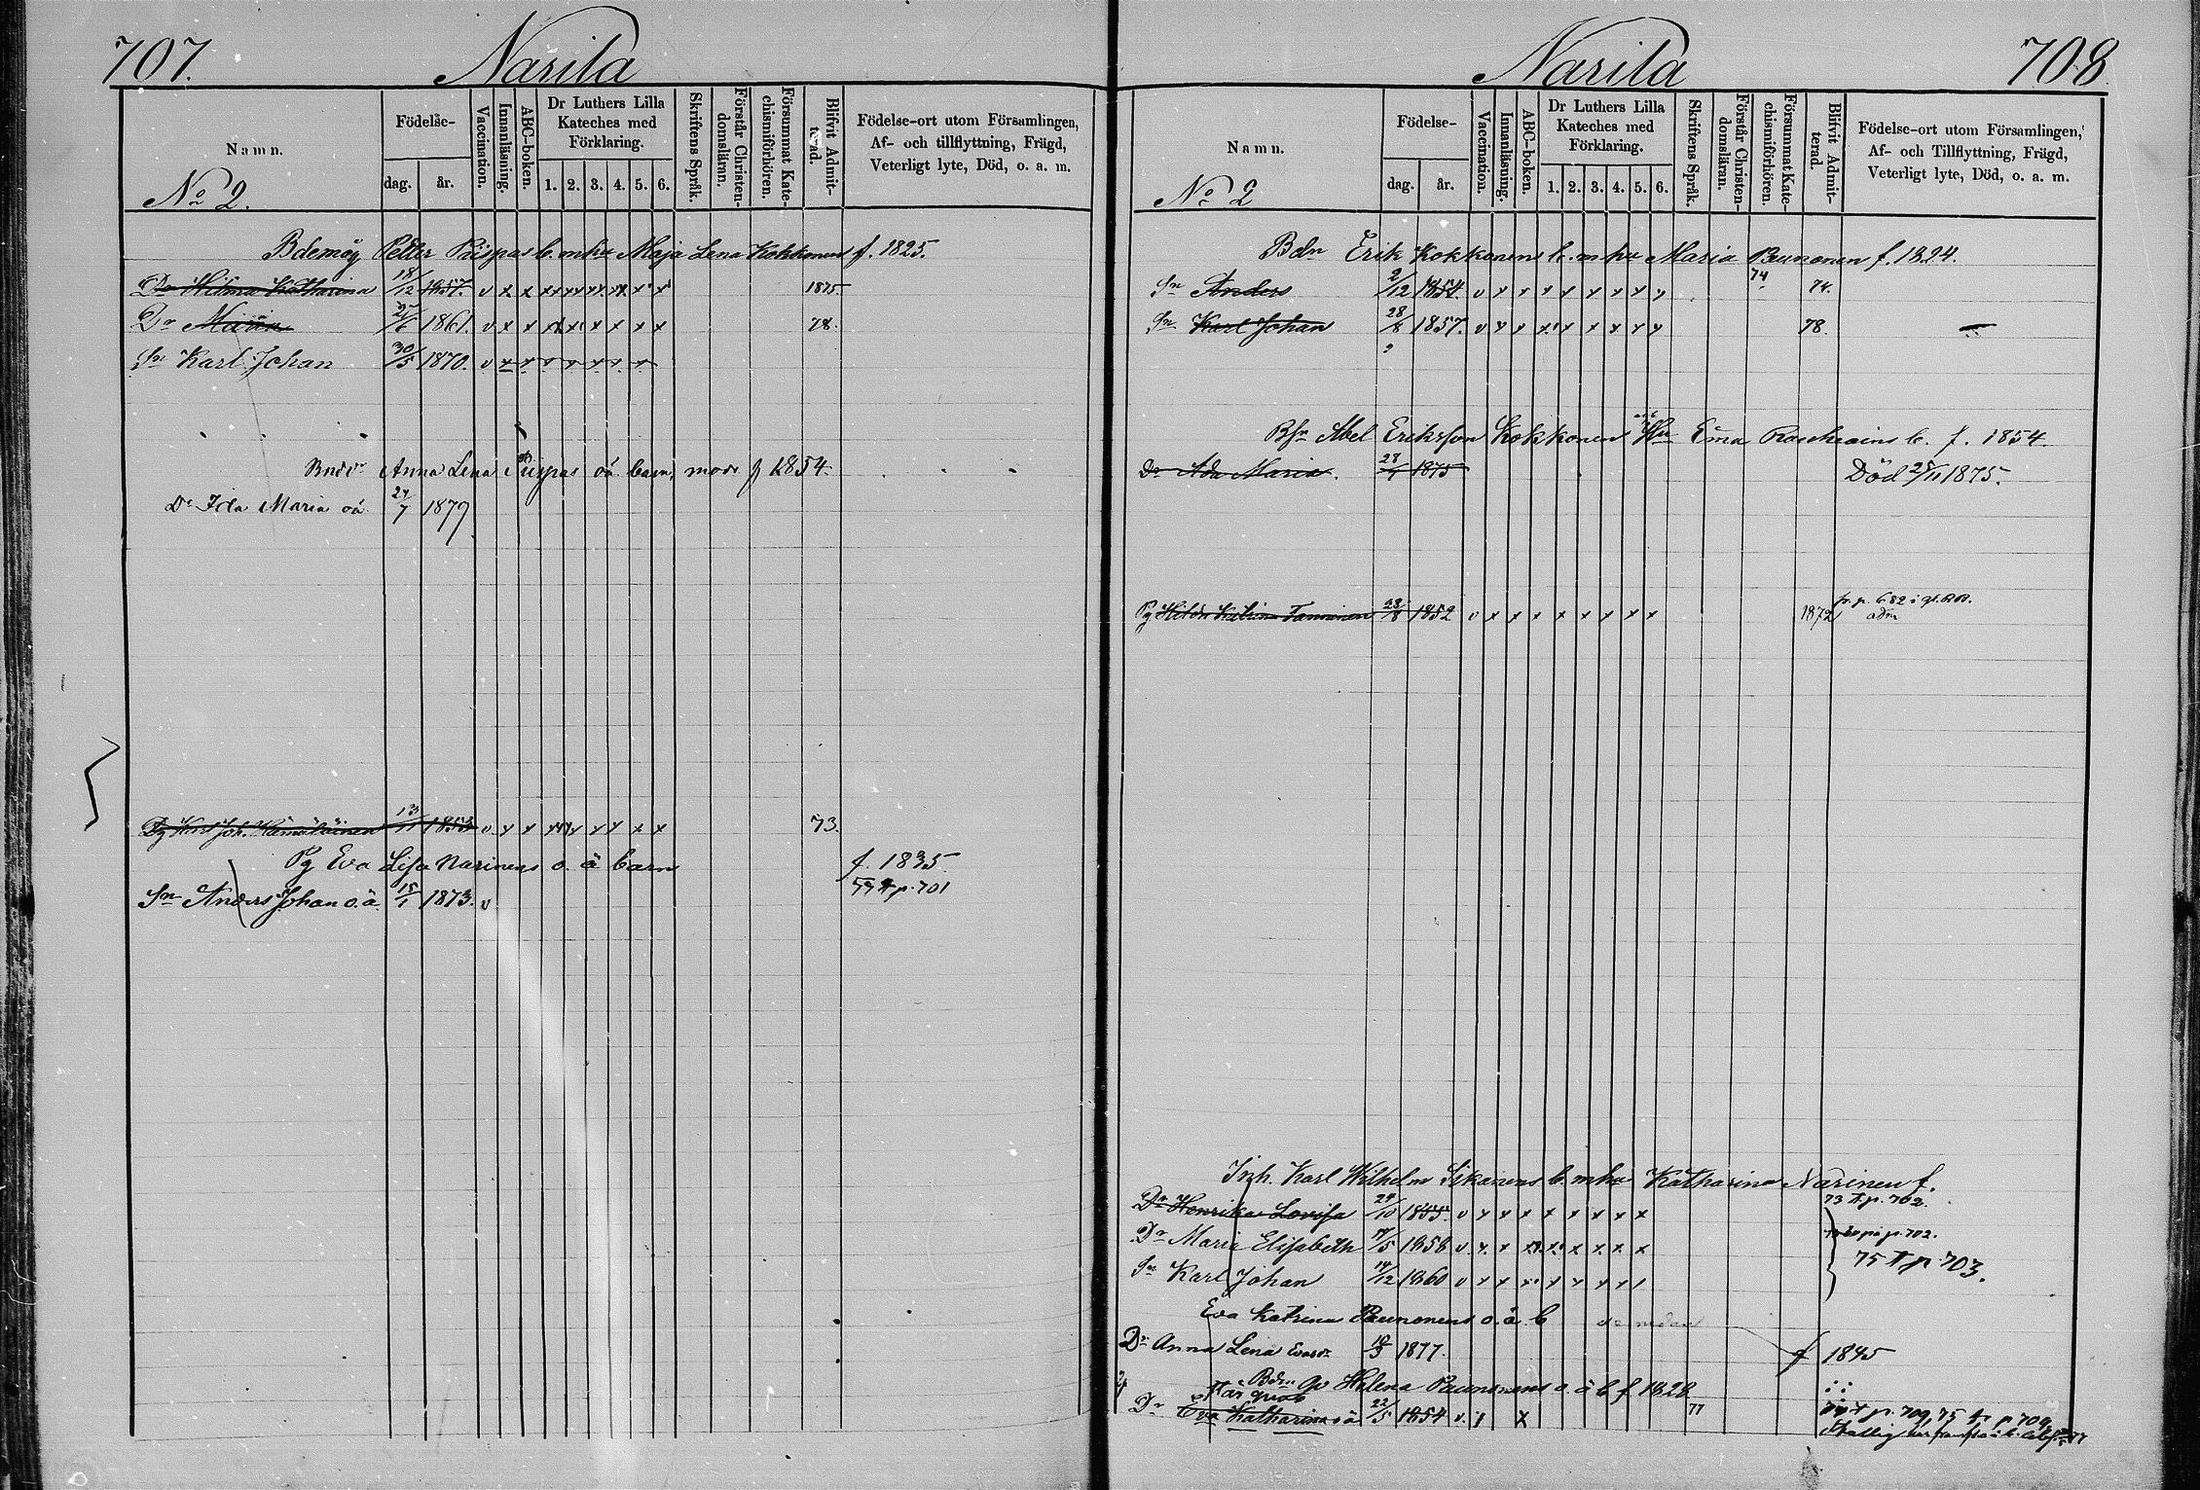 707.
Narila
Namn.
Födelse-
dag.
år.
Vaccination.
Innanläsning.
ABC-boken.
Dr Luthers Lilla
Kateches med
Förklaring.
1. 2. 3. 4. 5. 6.
Skriftens Språk.
Förstår Christen-
domslärnn.
Försummat Kate-
chismiförhören.
Blifvit Admit-
terad.
Födelse-ort utom Församlingen,
Af- och tillflyttning, Frägd,
Veterligt lyte, Död, o. a. m.
No 2.
Petter Piispas b. m hu Maja Lena Kokkonens f. 1825.
Dr Hilma Katharina 18/12 1857. v x x x x x x x x 1875
Dr Maria 27/6 1861. v x x x x x x x x 78.
Sn Karl Johan 30/5 1870. v x x x x x x x
Anna Lena Piispas oä barn, mod f 1854.
Dr Ida Maria oä 27/7 1879
Karl Joh. Hämäläinen 13/11 1853 v x x x x x x x x 73.
Pg Eva Lisa Narinens o. ä barn f. 1835.
p. 701
Sn Anders Johan o. ä. 15/1 1873. v
708
Narila
Namn.
Födelse-
dag.
år.
Vaccination.
Innanläsning.
ABC-boken.
Dr Luthers Lilla
Kateches med
Förklaring.
1. 2. 3. 4. 5. 6.
Skriftens Språk.
Förstår Christen-
domsläran.
Försummat Kate-
chismiförhören.
Blifvit Admit-
terad.
Födelse-ort utom Församlingen,
Af- och Tillflyttning, Frägd,
Veterligt lyte, Död, o. a. m.
No 2
Bdn Erik Kokkonens b. m hu Maria Paunonen f. 1824.
Sn Anders 2/12 1854. v x x x x x x x x 74 74.
Sn Karl Johan 28/8 1857. v x x x x x x x x 78.
Abel Eriksson Kokkonen Hu Ema b. f. 1854
Dr Ada Maria. 28/7 1875 Död 25/11 1875.
Pg Hilda Katrina Tanninen 23/8 1852 v x x x x x x x x 1872
Inh. Karl Wilhelm Sikanens b. m hu Katharina Narinen f.
73 p. 702.
Dr Henrika Lovisa 24/10 1855. v x x x x x x x x
Dr Maria Elisabeth 17/5 1858 v x x x x x x x x
p. 702.
75 p 703.
Sn Karl Johan 14/12 1860 v x x x x x x x
Eva Katrina Paunonens o. ä b
Dr Anna Lena 10/3 1877. f 1845
Helena Paunonens o. ä b f 1828
Dr Eva Katharina oä 22/5 1854 v. x 77
p. 709, 75 p. 709,